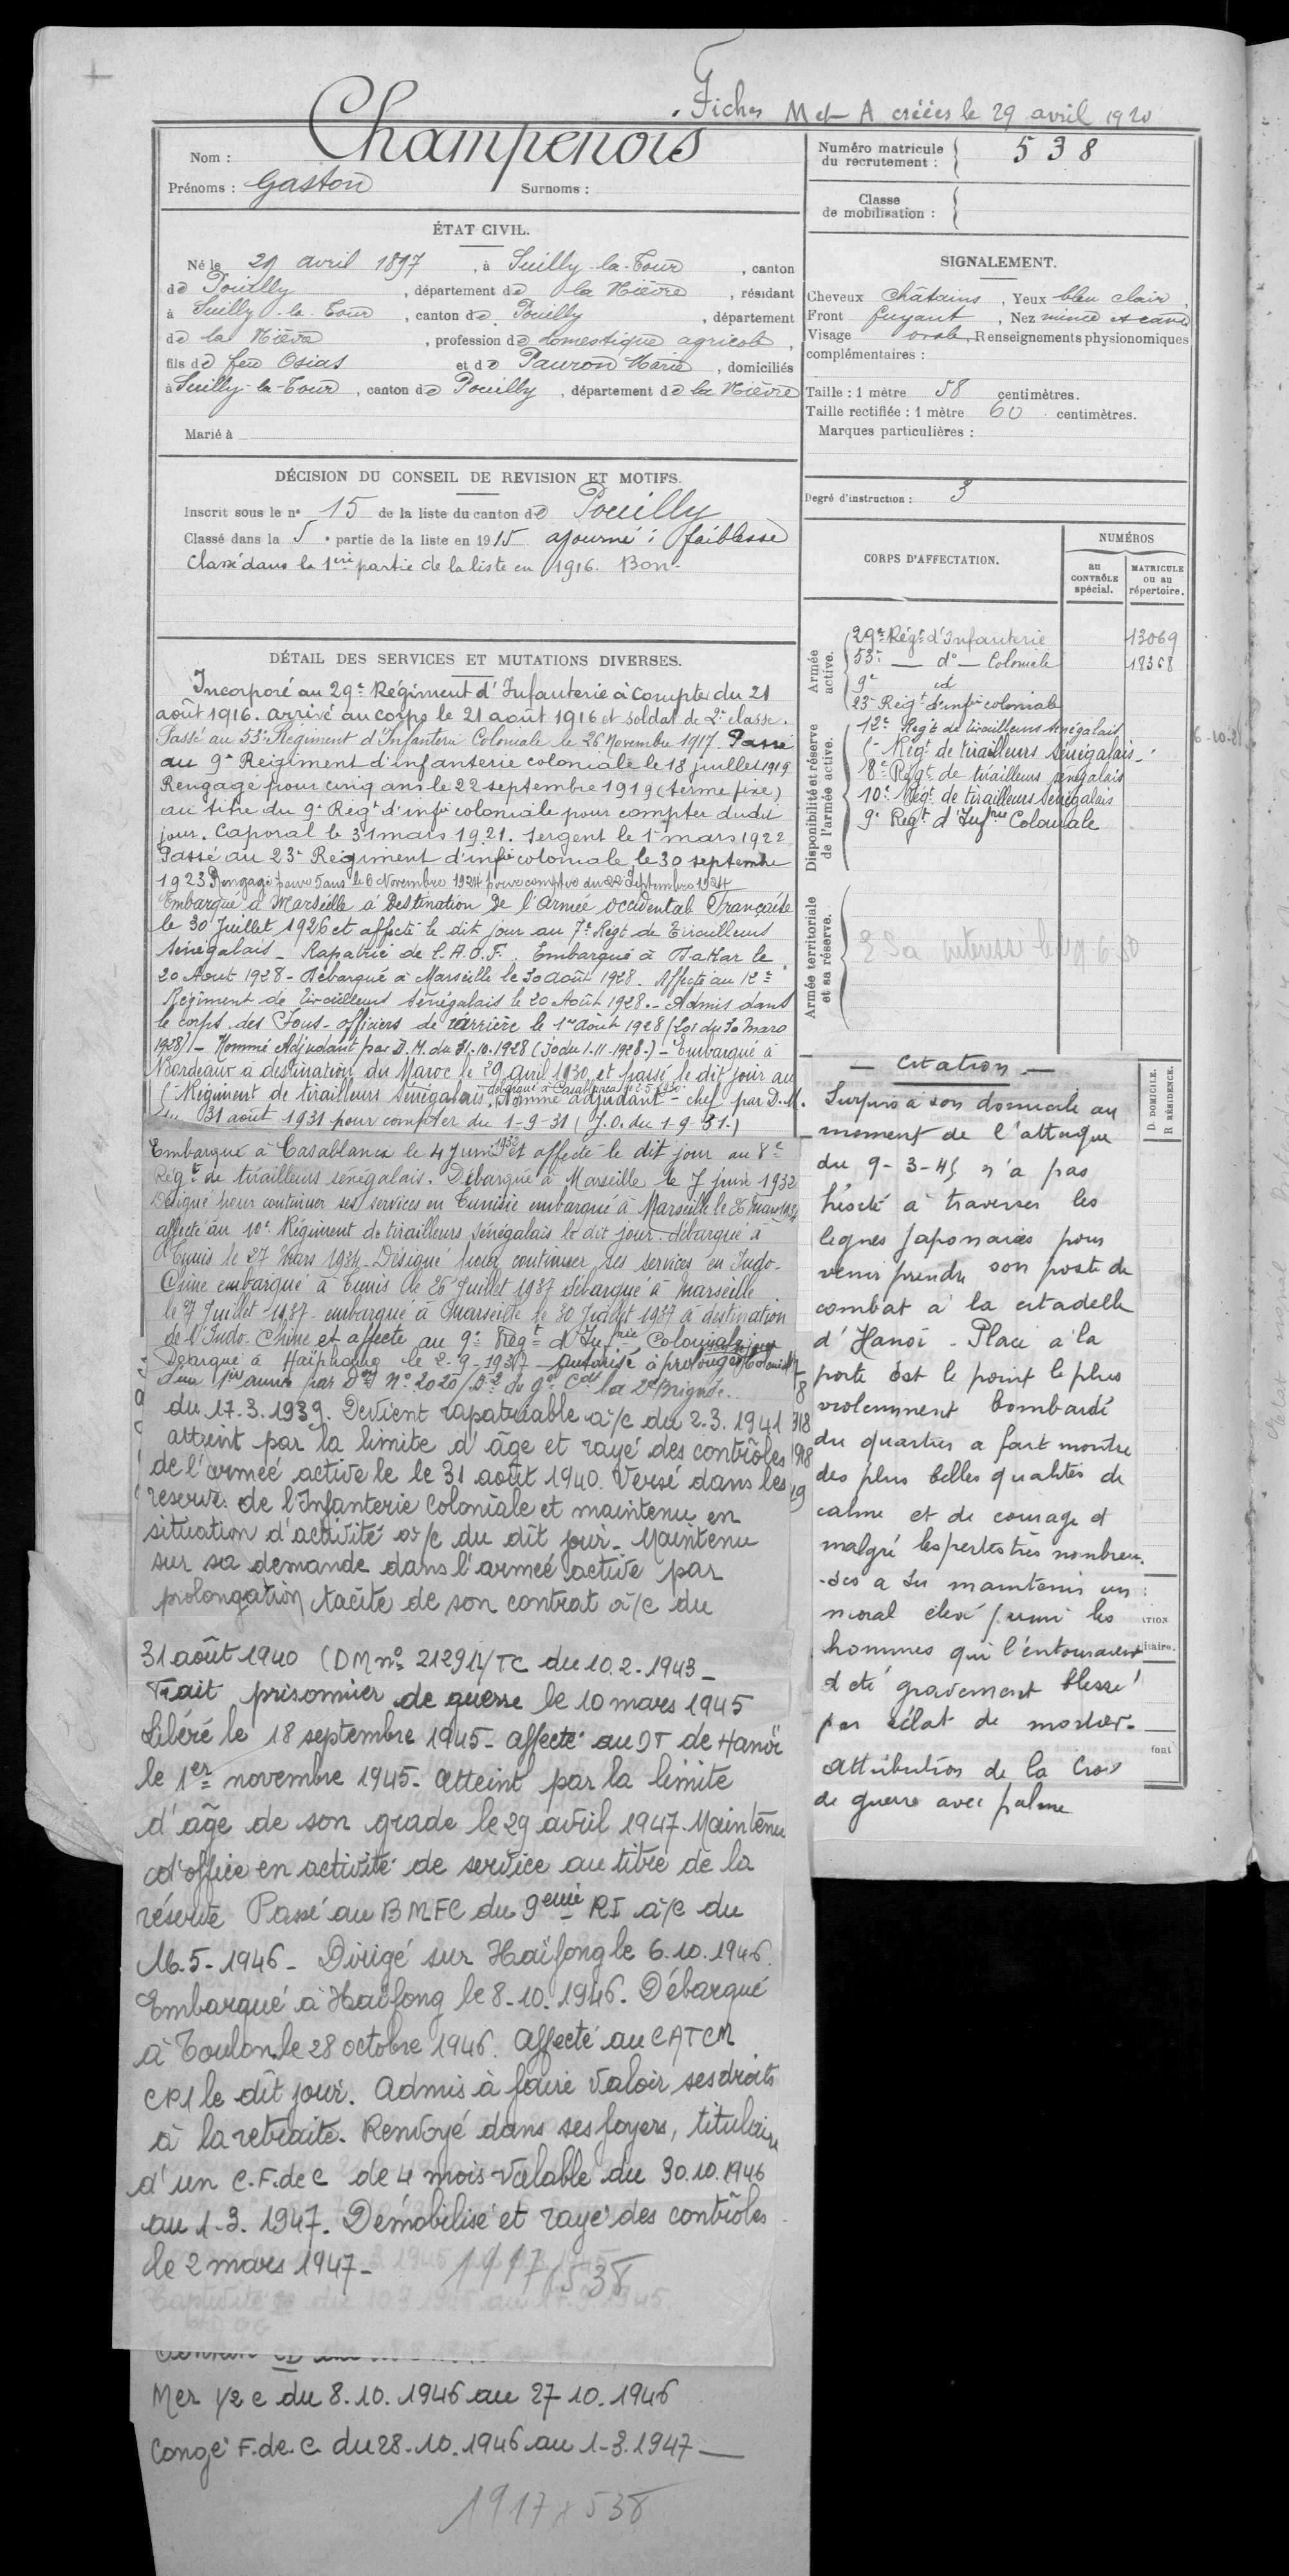 Fiches M et A créées le 29 avril 1920
Nom : Champenois
Prénoms : Gaston Surnoms :
ÉTAT CIVIL.
Né le 29 avril 1897, à Suilly-la-Tour, canton
de Pouilly, département de la Nièvre, résidant
à Suilly-la-Tour, canton de Pouilly, département
de la Nièvre, profession de domestique agricole,
fils de feu Osias et de Pauron Marie, domiciliés
à Suilly-la-Tour, canton de Pouilly, département de la Nièvre
Marié à
DÉCISION DU CONSEIL DE REVISION ET MOTIFS.
Inscrit sous le n° 15 de la liste du canton de Pouilly
Classé dans la 5e partie de la liste en 1915 ajourné : faiblesse
Classé dans la 1ère partie de la liste en 1916. Bon.
DÉTAIL DES SERVICES ET MUTATIONS DIVERSES.
Incorporé au 29e Régiment d'Infanterie à compter du 21
août 1916. arrivé au corps le 21 août 1916 et soldat de 2e classe.
Passé au 53e Régiment d'Infanterie Coloniale le 26 Novembre 1917. Passé
au 9e Régiment d'infanterie coloniale le 18 juillet 1919
Rengagé pour cinq ans le 22 septembre 1919 (terme fixe)
au titre du 9e Régt d'infie coloniale pour compter dudit
jour. Caporal le 31 mars 1921. Sergent le 1er mars 1922
Passé au 23e Régiment d'infie coloniale le 30 septembre
1923. Rengagé pour 5 ans le 6 Novembre 1924 pour compter du 22 Septembre 1924
Embarqué à Marseille à Destination de l'Armée occidentale Française
le 30 Juillet 1926 et affecté le dit jour au 7e Régt de Tirailleurs
Sénégalais - Rapatrié de l'A.O.F. Embarqué à Dakar le
20 Août 1928 - Débarqué à Marseille le 30 août 1928. Affecté au 12e
Régiment de tirailleurs Sénégalais le 20 Août 1928. - Admis dans
le corps des Sous-officiers de carrière le 1er août 1928 (Loi du 30 Mars
1928) - Nommé Adjudant par D.M. du 31-10-1928 (Jo du 1-11-1928.) - Embarqué à
Bordeaux à destination du Maroc le 29 avril 1930 et passé le dit jour au
Régiment de tirailleurs sénégalais. débarqué à Casablanca le Nommé adjudant-chef par D.M.
du 31 août 1931 pour compter du 1-9-31 (J.O. du 1-9-31.)
Embarqué à Casablanca le 4 Juin 1932 et affecté le dit jour au 8e
Régt de tirailleurs sénégalais. Débarqué à Marseille le 7 juin 1932
Désigné pour continuer ses services en Tunisie embarqué à Marseille le 26 mars 1934
affecté au 10e Régiment de tirailleurs sénégalais le dit jour débarqué à
Tunis le 27 mars 1934 - Désigné pour continuer ses services en Indo-
Chine embarqué à Tunis le 26 Juillet 1937 débarqué à Marseille
le 27 Juillet 1937 - embarqué à Marseille le 30 Juillet 1937 à destination
de l'Indo-Chine et affecté au 9e Régt d'Infrie Coloniale
Débarqué à Haïphong le 2-9-1937 - autorisé à prolonger
d'une année par Don N° 2020/ du Gal Cdt la 2e Brigade.
du 17.3.1939. Devient rapatriable à/c du 2.3.1941
atteint par la limite d'âge et rayé des contrôles
de l'armée active le le 31 août 1940. Versé dans les
réserves de l'Infanterie Coloniale et maintenu en
situation d'activité à/c du dit jour. Maintenu
sur sa demande dans l'armée active par
prolongation tacite de son contrat à/c du
31 août 1940 (DM n° 21291/TC du 10.2.1943 -
Fait prisonnier de guerre le 10 mars 1945
Libéré le 18 septembre 1945 - affecté au DT de Hanoï
le 1er novembre 1945 - Atteint par la limite
d'âge de son grade le 29 avril 1947. Maintenu
d'office en activité de service au titre de la
réserve Passé au BMFC du 9eme RI à/c du
16-5-1946 - Dirigé sur Haïfong le 6.10.1946.
Embarqué à Haïfong le 8-10-1946. Débarqué
à Toulon le 28 octobre 1946. Affecté au CATCM
CP1 le dit jour. Admis à faire valoir ses droits
à la retraite. Renvoyé dans ses foyers, titulaire
d'un C.F.de C de 4 mois valable du 30.10.1946
au 1-3-1947. Démobilisé et rayé des contrôles
le 2 mars 1947 -
1917/538
Mer 1/2 c du 8.10.1946 au 27-10.1946
Congé F.de.C du 28.10.1946 au 1-3.1947
1917 x 538
Numéro matricule du recrutement : 538
Classe de mobilisation :
SIGNALEMENT.
Cheveux châtains, Yeux bleu clair,
Front fuyant, Nez mince et cave
Visage ovale, Renseignements physionomiques
complémentaires :
Taille : 1 mètre 58 centimètres.
Taille rectifiée : 1 mètre 60 centimètres.
Marques particulières :
Degré d'instruction : 3
CORPS D'AFFECTATION.
NUMÉROS
au CONTRÔLE spécial.
MATRICULE ou au répertoire.
Armée active.
29e Régt d'Infanterie 13069
53e - do - Coloniale 18368
9e id
23e Régt d'infie coloniale
Disponibilité et réserve de l'armée active.
12e Régt de tirailleurs sénégalais
Régt de tirailleurs sénégalais
8e Régt de tirailleurs sénégalais
10e Régt de tirailleurs sénégalais
9e Régt d'Infrie Coloniale
Armée territoriale et sa réserve.
D. DOMICILE.
R. RÉSIDENCE.
- Citation -
Surpris à son domicile au
moment de l'attaque
du 9-3-45 n'a pas
hésité à traverser les
lignes japonaises pour
venir prendre son poste de
combat à la citadelle
d'Hanoï - Placé à la
porte Est le point le plus
violemment bombardé
du quartier a fait montre
des plus belles qualités de
calme et de courage et
malgré les pertes très nombreu-
-ses a su maintenir un
moral élevé parmi les
hommes qui l'entouraient
a été gravement blessé
par éclat de mortier.
Attribution de la Croix
de guerre avec palme